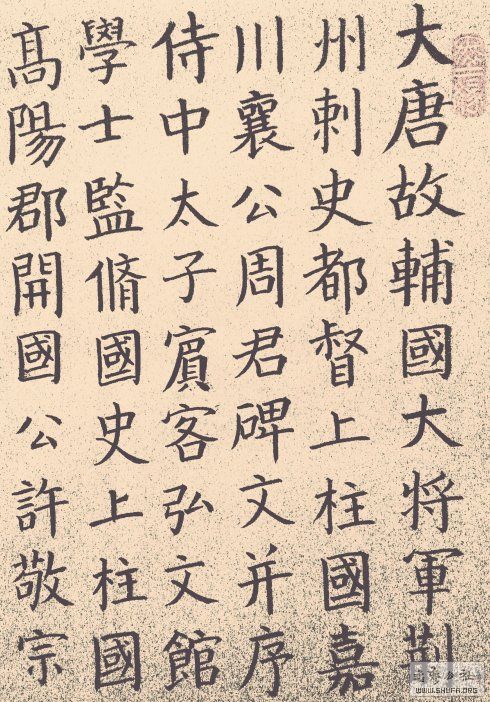 大唐故輔國大将軍荆
州刺史都督上柱國嘉
川襄公周君碑文并序
侍中太子賓客弘文館
學士監脩國史上柱國
髙陽郡開國公許敬宗
WWW.SHUFA.ORG